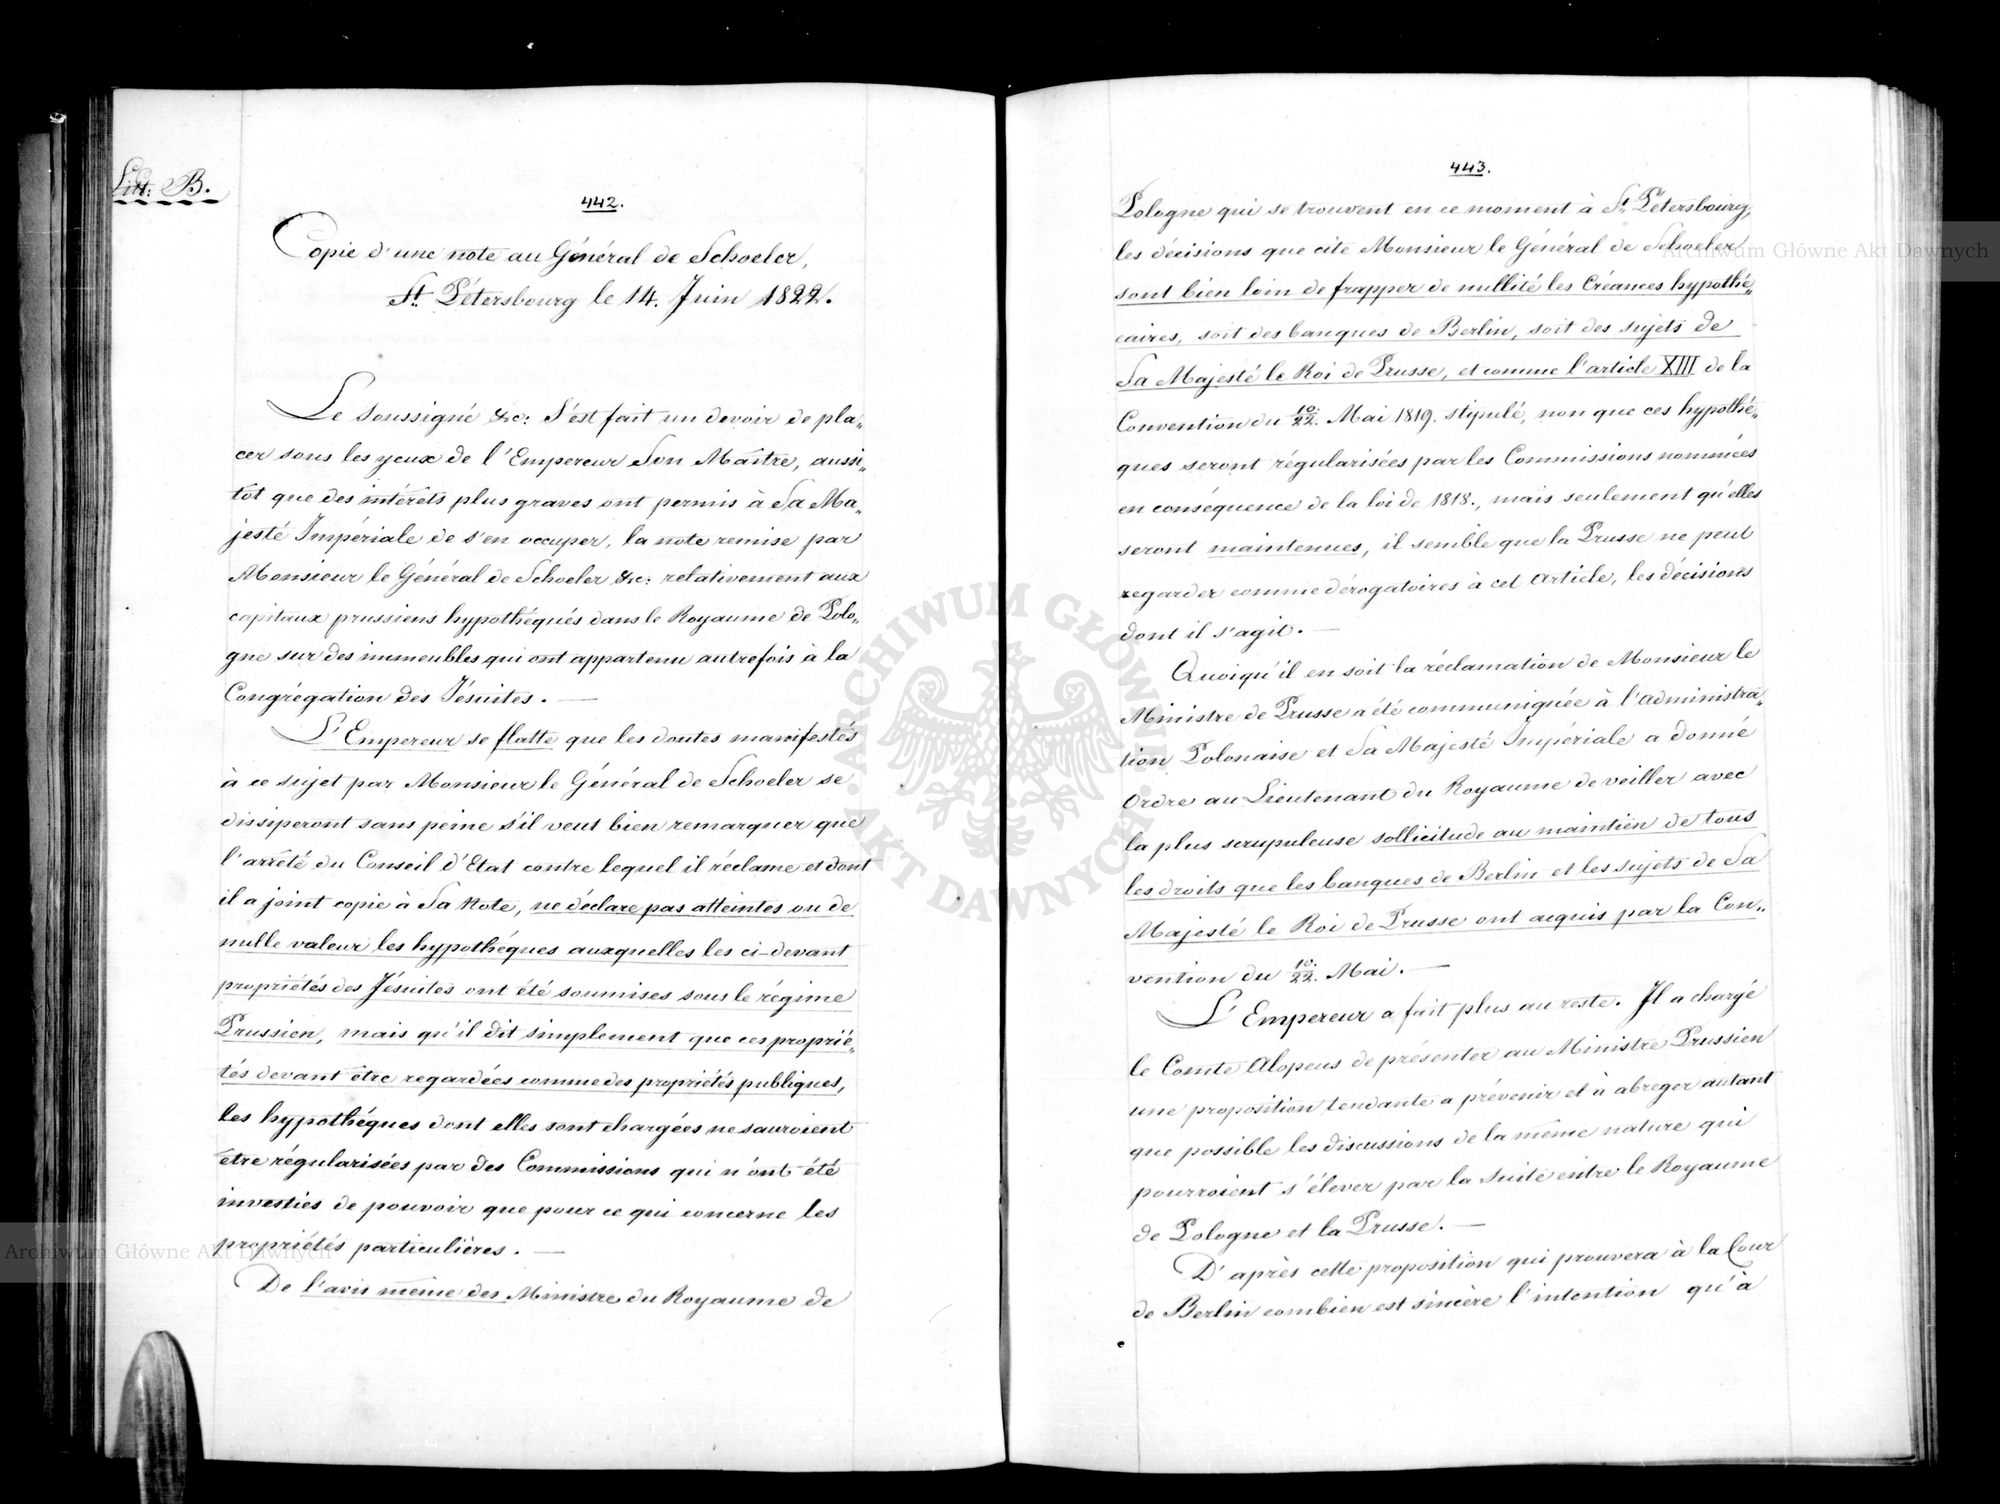 Litt: B.
442.
Copie d'une note au Général de Schoeler,
St. Pétersbourg le 14. Juin 1822.
Le Soussigné &c: S'est fait un devoir de pla„
cer sous les yeux de l'Empereur Son Maître, aussi„
tôt que des intérêts plus graves ont permis à Sa Ma„
jesté Impériale de s'en occuper, la note remise par
Monsieur le Général de Schoeler &c: relativement aux
capitaux prussiens hypothéqués dans le Royaume de Polo„
gne sur des immeubles qui ont appartenu autrefois à la
Congrégation des Jésuites. —
L'Empereur se flatte que les doutes manifestés
à ce sujet par Monsieur le Général de Schoeler se
dissiperont sans peine s'il veut bien remarquer que
l'arrêté du Conseil d'Etat contre lequel il réclame et dont
il a joint copie à Sa Note, ne déclare pas atteintes ou de
nulle valeur les hypothéques auxquelles les ci-devant
propriétés des Jésuites ont été soumises sous le régime
Prussien, mais qu'il dit simplement que ces proprié„
tés devant être regardées comme des propriétés publiques,
les hypothéques dont elles sont chargées ne sauroient
être régularisées par des Commissions qui n'ont été
investies de pouvoir que pour ce qui concerne les
propriétés particulières. —
De l'avis même des Ministre du Royaume de
443.
Pologne qui se trouvent en ce moment à St. Pétersbourg,
les décisions que cite Monsieur le Général de Schoeler
sont bien loin de frapper de nullité les Créances hypothé„
caires, soit des banques de Berlin, soit des sujets de
Sa Majesté le Roi de Prusse, et comme l'article XIII de la
Convention du 10/22. Mai 1819. stipulé, non que ces hypothé„
ques seront régularisées par les Commissions nommées
en conséquence de la loi de 1818., mais seulement qu'elles
seront maintenues, il semble que la Prusse ne peut
regarder comme dérogatoires à cet Article, les décisions
dont il s'agit. —
Quoiqu'il en soit la réclamation de Monsieur le
Ministre de Prusse a été communiquée à l'administra„
tion Polonaise et Sa Majesté Impériale a donné
Ordre au Lieutenant du Royaume de veiller avec
la plus scrupuleuse sollicitude au maintien de tous
les droits que les banques de Berlin et les sujets de Sa
Majesté le Roi de Prusse ont acquis par la Con„
vention du 10/22. Mai. —
L'Empereur a fait plus au reste. Il a chargé
le Comte Alopeus de présenter au Ministre Prussien
une proposition tendante a prévenir et à abreger autant
que possible les discussions de la même nature qui
pourroient s'élever par la Suite entre le Royaume
de Pologne et la Prusse. —
D'après cette proposition qui prouvera à la Cour
de Berlin combien est sincère l'intention qu'à
Archiwum Główne Akt Dawnych
Archiwum Główne Akt Dawnych
ARCHIWUM GŁÓWNE AKT DAWNYCH